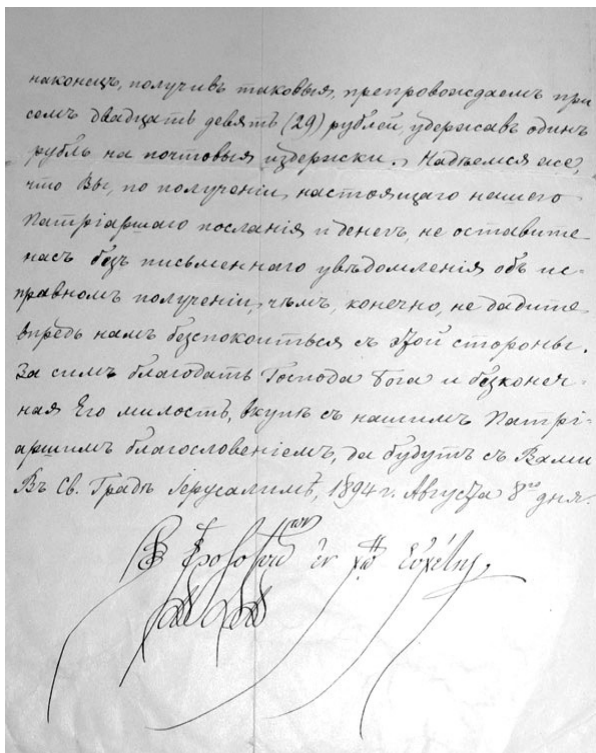 наконецъ, получивъ таковыя, препровождаемъ при
семъ двадцать девять (29) рублей, удержавъ одинъ
рубль на почтовыя издержки. Надѣемся же,
что Вы, по полученіи настоящаго нашего
Патріаршаго посланія и денегъ, не оставите
насъ безъ письменнаго увѣдомленія объ ис-
правномъ полученіи, чѣмъ, конечно, не дадите
впредь намъ безпокоиться съ этой стороны.
За симъ благодать Господа Бога и безконеч-
ная Его милость, вкупѣ съ нашимъ Патрі-
аршимъ благословеніемъ, да будутъ съ Вами
Въ Св. Градѣ Іерусалимѣ, 1894 г. Августа 8го дня.
ἐν Χῷ εὐχέτης